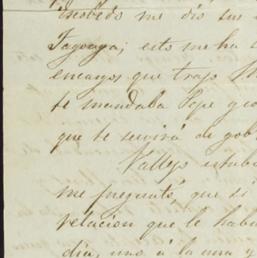 Escobedo me dió sus
esto me ha
encargos que trajo
te mandaba Pepe
que te servirá de
Vallejo estaba
me preguntó, que si
relacion que le habia
dia, uno á la una y